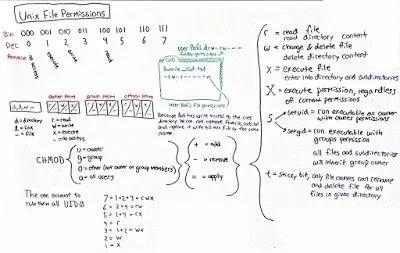 Unix File Permissions
Bin 000 001 010 011 100 101 110 111
Dec 0 1 2 3 4 5 6 7
execute
write
read
User Bob's drw-rw----
Cat
favorite_cat.txt
-rw-r-----
User Bob's file permissions
owner perm group perm other perm
d,l,-
r/- w/- x/- r/- w/- x/- r/- w/- x/-
d = directory
l = link
- = file
r = read
w = write
x = execute
- = no access
Because Bob has write access to the cats
directory he can out favorite_cat.txt
and replace it with his own file by the same
name
CHMOD
u = owner
g = group
o = other (not owner or group members)
a = all users
+ = add
- = remove
= = apply
The one account to
rule them all UID0
7 = 1+2+4 = rwx
6 = 2+4 = rw
5 = 1+4 = rx
4 = r
3 = 1+2 = wx
2 = w
1 = x
r = read file
read directory content
w = change & delete file
delete directory content
x = execute file
enter into directory and subdirectories
X = execute permission, regardless
of current permissions
s
setuid = run executable as owner
with owner permissions
setgid = run executable with
groups permission
all files and subdirectories
will inherit group owner
t = sticky bit, only file owners can rename
and delete file for all
files in given directory